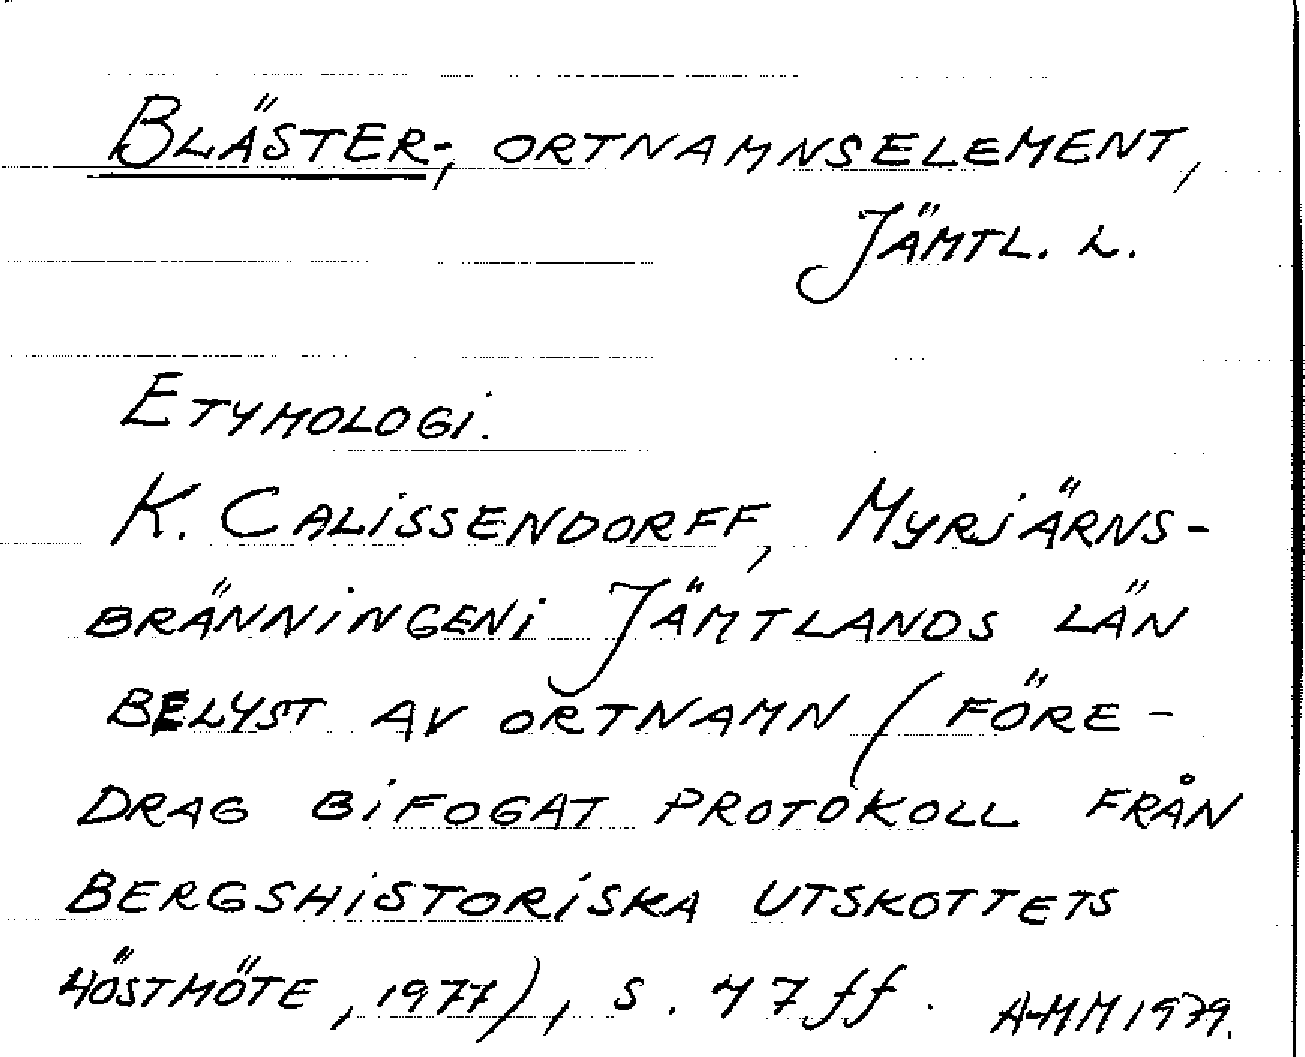 BLÄSTER-, ORTNAMNSELEMENT,
JÄMTL. L.
ETYMOLOGI.
K. CALISSENDORFF, MYRJÄRNS-
BRÄNNINGEN I JÄMTLANDS LÄN
BELYST AV ORTNAMN (FÖRE-
DRAG BIFOGAT PROTOKOLL FRÅN
BERGSHISTORISKA UTSKOTTETS
HÖSTMÖTE, 1977), S. 47 ff.
A-MM 1979.